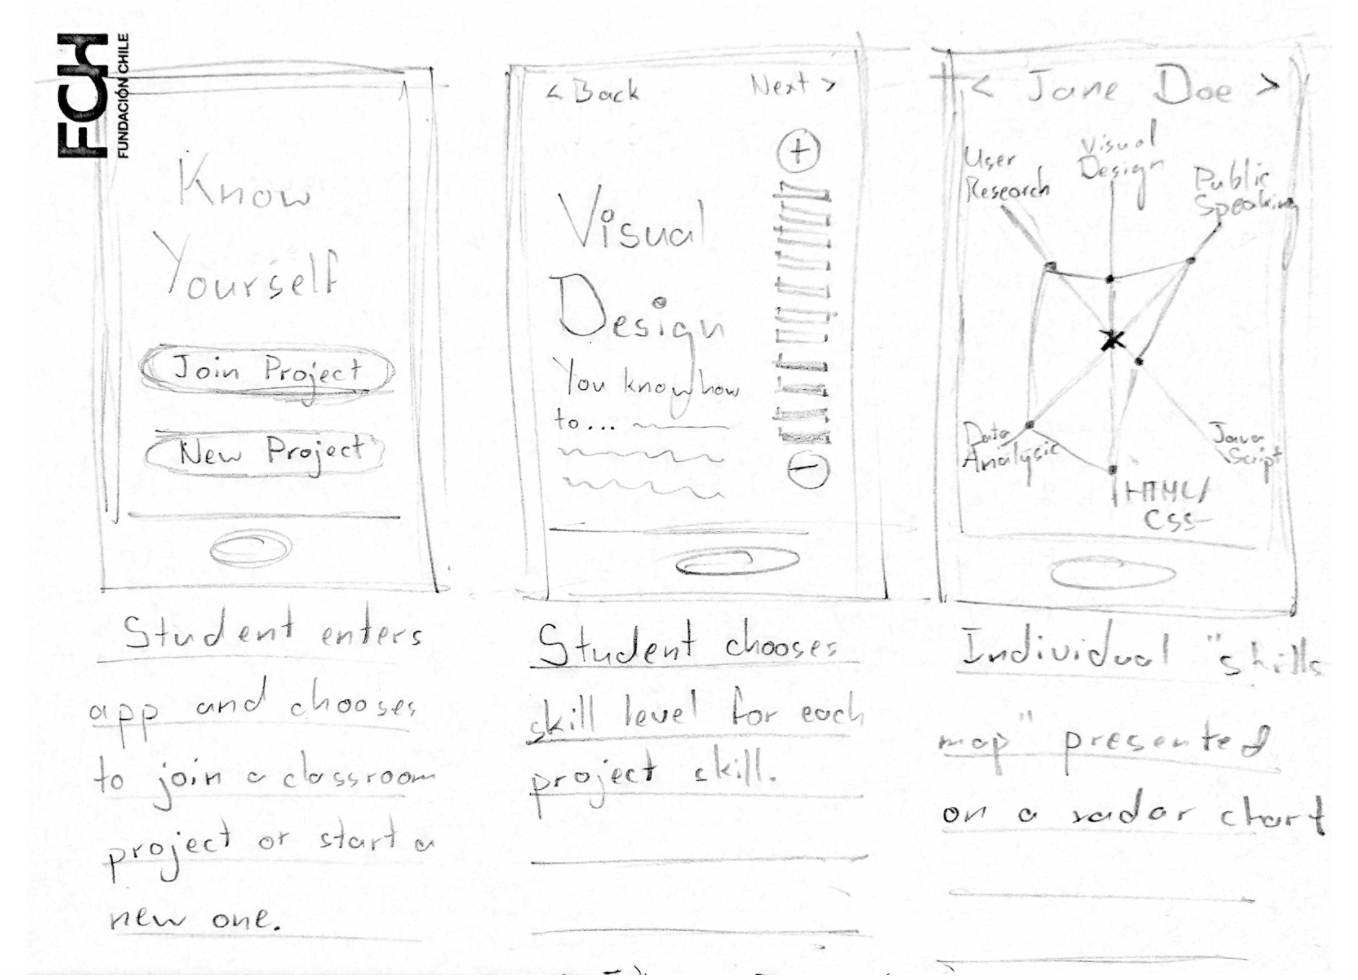 FCH
FUNDACIÓN CHILE
Know
Yourself
Join Project
New Project
Student enters
app and chooses
to join a classroom
project or start a
new one.
< Back
Next >
Visual
Design
You know how
to...
Student chooses
skill level for each
project skill.
< Jane Doe >
User
Research
Visual
Design
Public
Speaking
Data
Analysis
Java
Script
HTML/
CSS
Individual "skills
map" presented
on a radar chart